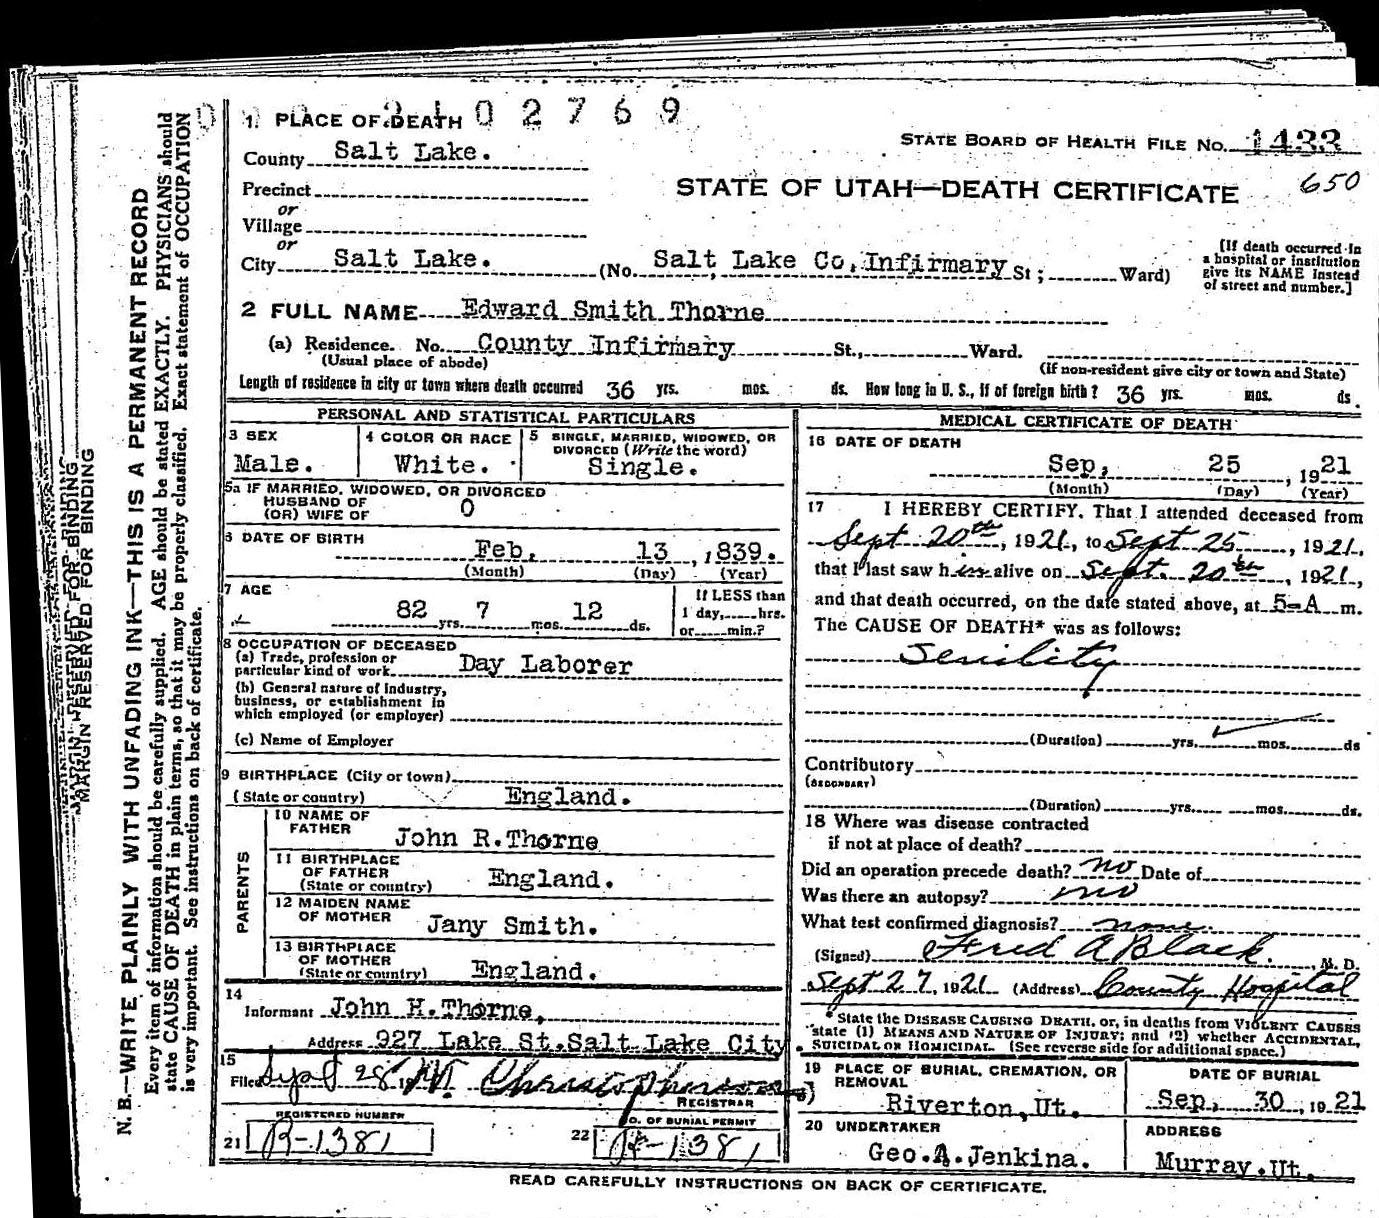 2102769
1. PLACE OF DEATH
STATE BOARD OF HEALTH FILE No. 1433
County Salt Lake.
650
STATE OF UTAH—DEATH CERTIFICATE
Precinct
or
Village
or
City Salt Lake. (No. Salt Lake Co. Infirmary St; Ward)
[If death occurred in
a hospital or institution
give its NAME instead
of street and number.]
2 FULL NAME Edward Smith Thorne
(a) Residence. No. County Infirmary St., Ward.
(Usual place of abode) (If non-resident give city or town and State)
Length of residence in city or town where death occurred 36 yrs. mos. ds. How long in U. S., if of foreign birth? 36 yrs. mos. ds.
PERSONAL AND STATISTICAL PARTICULARS
3 SEX
Male.
4 COLOR OR RACE
White.
5 SINGLE, MARRIED, WIDOWED, OR
DIVORCED (Write the word)
Single.
5a IF MARRIED, WIDOWED, OR DIVORCED
HUSBAND OF
(OR) WIFE OF 0
6 DATE OF BIRTH
Feb, 13, 1839.
(Month) (Day) (Year)
7 AGE
82 yrs. 7 mos. 12 ds.
If LESS than
1 day, hrs.
or min.?
8 OCCUPATION OF DECEASED
(a) Trade, profession or
particular kind of work Day Laborer
(b) General nature of industry,
business, or establishment in
which employed (or employer)
(c) Name of Employer
9 BIRTHPLACE (City or town)
(State or country) England.
PARENTS
10 NAME OF
FATHER John R. Thorne
11 BIRTHPLACE
OF FATHER
(State or country) England.
12 MAIDEN NAME
OF MOTHER Jany Smith.
13 BIRTHPLACE
OF MOTHER
(State or country) England.
14
Informant John H. Thorne,
Address 927 Lake St. Salt Lake City.
15
Filed Sept 28 19
REGISTRAR
REGISTERED NUMBER
21 R-1381
NO. OF BURIAL PERMIT
22 R-1381
MEDICAL CERTIFICATE OF DEATH
16 DATE OF DEATH
Sep, 25, 1921
(Month) (Day) (Year)
17 I HEREBY CERTIFY, That I attended deceased from
Sept 20th, 1921, to Sept 25, 1921,
that I last saw him alive on Sept. 20th, 1921,
and that death occurred, on the date stated above, at 5-A m.
The CAUSE OF DEATH* was as follows:
Senility
(Duration) yrs. mos. ds
Contributory
(SECONDARY)
(Duration) yrs. mos. ds.
18 Where was disease contracted
if not at place of death?
Did an operation precede death? no Date of
Was there an autopsy? no
What test confirmed diagnosis? none.
(Signed) Fred A Black. M. D.
Sept 27, 1921 (Address) County Hospital
*State the DISEASE CAUSING DEATH, or, in deaths from VIOLENT CAUSES
state (1) MEANS AND NATURE OF INJURY; and (2) whether ACCIDENTAL,
SUICIDAL OR HOMICIDAL. (See reverse side for additional space.)
19 PLACE OF BURIAL, CREMATION, OR
REMOVAL
Riverton, Ut.
DATE OF BURIAL
Sep, 30, 1921
20 UNDERTAKER
Geo. A. Jenkina.
ADDRESS
Murray. Ut.
READ CAREFULLY INSTRUCTIONS ON BACK OF CERTIFICATE.
MARGIN RESERVED FOR BINDING
N. B.—WRITE PLAINLY WITH UNFADING INK—THIS IS A PERMANENT RECORD
Every item of information should be carefully supplied. AGE should be stated EXACTLY. PHYSICIANS should
state CAUSE OF DEATH in plain terms, so that it may be properly classified. Exact statement of OCCUPATION
is very important. See instructions on back of certificate.